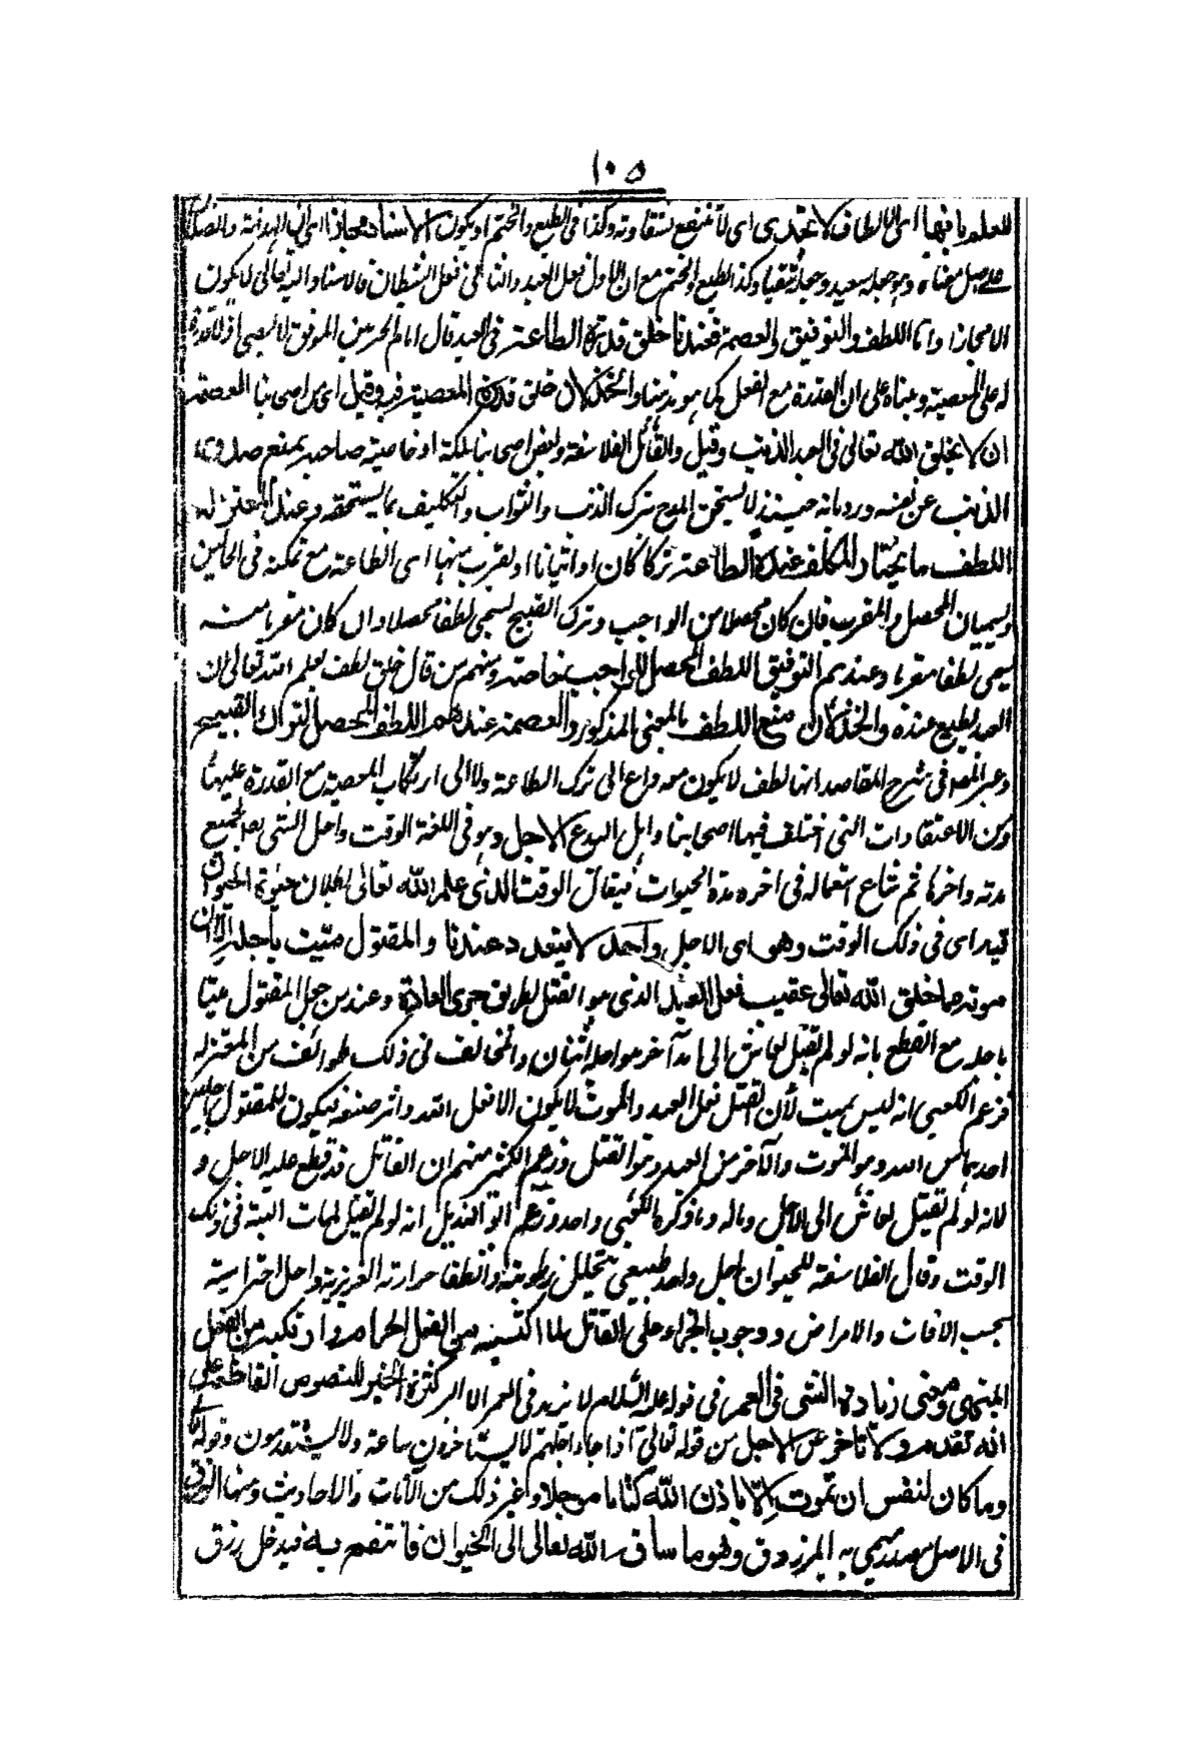 ١٠٥
للعلم بانها اى الالطاف لا تجدى اى لا تنفع لشقاوته وكذا فى الطبع والختم او يكون الاسناد مجازا اى الهداية والضلال
على اصل معناه وهو جعله سعيدا وجعله شقيا وكذا الطبع والختم مع ان الاول فعل العبد والثانى فعل الشيطان فالاسناد اليه تعالى لا يكون
الا مجازا واما اللطف والتوفيق والعصمة فعندنا خلق قدرة الطاعة فى العبد قال امام الحرمين الموفق لا يعصى اذ لا قدرة
له على المعصية وبناه على ان القدرة مع الفعل كما هو مذهبنا والخذلان خلق قدرة المعصية فيه وقيل اى راى اصحابنا العصمة
ان لا يخلق الله تعالى فى العبد الذنب وقيل والقائل الفلاسفة وبعض اصحابنا ملكة او خاصية صاحبه يمنع صدور
الذنب عن نفسه ورد بانه حينئذ لا يستحق المدح بترك الذنب والثواب والتكليف بما يستحقه وعند المعتزلة
اللطف ما يختار المكلف عنده الطاعة تركا كان او اتيانا او يقرب منها اى الطاعة مع تمكنه فى الحالين
ويسميان المحصل والمقرب فان كان محصلا من الواجب وترك القبيح يسمى لطفا محصلا وان كان مقربا منه
يسمى لطفا مقربا وعندهم التوفيق اللطف المحصل للواجب خاصة ومنهم من قال خلق لطف يعلم الله تعالى ان
العبد يطيع عنده والخذلان منع اللطف بالمعنى المذكور والعصمة عندهم اللطف المحصل لترك القبيح
وعبر المصه فى شرح المقاصد انها لطف لا يكون معه داع الى ترك الطاعة ولا الى ارتكاب المعصية مع القدرة عليهما
ومن الاعتقادات التى اختلف فيها اصحابنا واهل البدع الاجل وهو فى اللغة الوقت واجل الشئ يقال لجميع
مدته واخرها ثم شاع استعماله فى اخر مدة الحيوة فيقال الوقت الذى علم الله تعالى بطلان حيوة الحيوان
فيه اى فى ذلك الوقت وهو اى الاجل واحد لا يتعدد عندنا والمقتول ميت باجله الا ان
موته مما خلق الله تعالى عقيب فعل العبد الذى هو القتل بطريق جرى العادة وعند من جعل المقتول ميتا
باجله مع القطع بانه لو لم يقتل لعاش الى امد آخر هو اجله اثنان والمخالف فى ذلك طوائف من المعتزلة
فزعم الكعبى انه ليس بميت لأن القتل فعل العبد والموت لا يكون الا فعل الله واثر صنعه فيكون للمقتول اجلين
احدهما من الله وهو الموت والآخر من العبد وهو القتل وزعم الكثير منهم ان القاتل قد قطع عليه الاجل و
لانه لو لم يقتل لعاش الى الاجل وماله وما ذكره الكعبى واحد وزعم ابو الهذيل انه لو لم يقتل لمات البتة فى ذلك
الوقت وقال الفلاسفة للحيوان اجل واحد طبيعى بتحلل رطوبته وانطفا حرارته الغريزية واجل اخترامية
بحسب الافات والامراض ووجوب الجزاء على القاتل لما اكتسبه من الفعل الحرام وارتكبه من الفعل
المنهى ومعنى زيادة الشئ فى العمر فى قوله عليه السلام لا يزيد فى العمر الا البر كثرة الخير للنصوص القاطعة على
انه تقدم ولا تاخر عن الاجل من قوله تعالى اذا جاء اجلهم لا يستاخرون ساعة ولا يستقدمون وقوله تعالى
وما كان لنفس ان تموت الا باذن الله كتابا موجلا وغير ذلك من الآيات والاحاديث ومنها الرزق
فى الاصل مصدر سمى به المرزوق وهو ما ساقه الله تعالى الى الحيوان فانتفع به فيدخل رزق